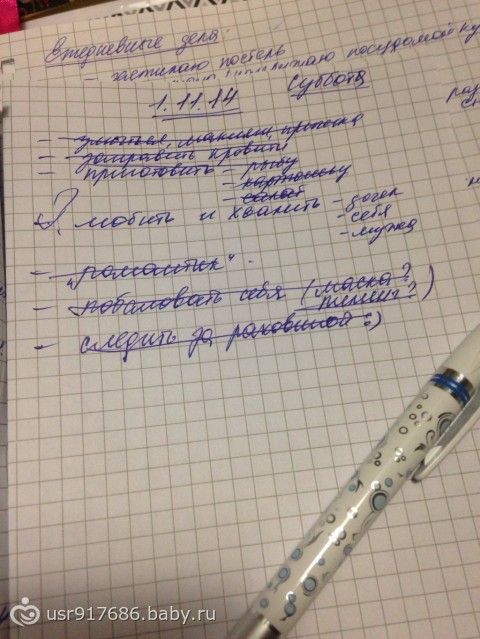 Ежедневные дела:
- застилаю постель
посудомойку
1.11.14 Суббота
- умыться, макияж, прическа
- заправить кровать
- приготовить - рыбу
- картошку
- салат
- ? любить и хвалить - дочек
- себя
- мужа
- "романтик"
- побаловать себя (маска?
пилинг?)
- следить за раковиной :)
usr917686.baby.ru